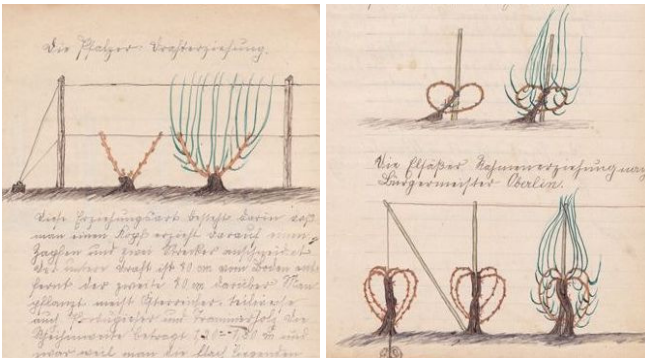 Die Pfälzer Drahterziehung.
Diese Erziehungsart besteht darin daß
man einen Kopf erzieht darauf einen
Zapfen und zwei Strecker anschneidet.
Der untere Draht ist 30 cm vom Boden ent
fernt der zweite 30 cm darüber Man
pflanzt meist Österreicher teilweise
auch Portugieser und Traminerholz. Die
Zeilenweite beträgt
zwar weil man die flach liegenden
Die Elsäßer Rahmenerziehung nach
Bürgermeister Oberlin.